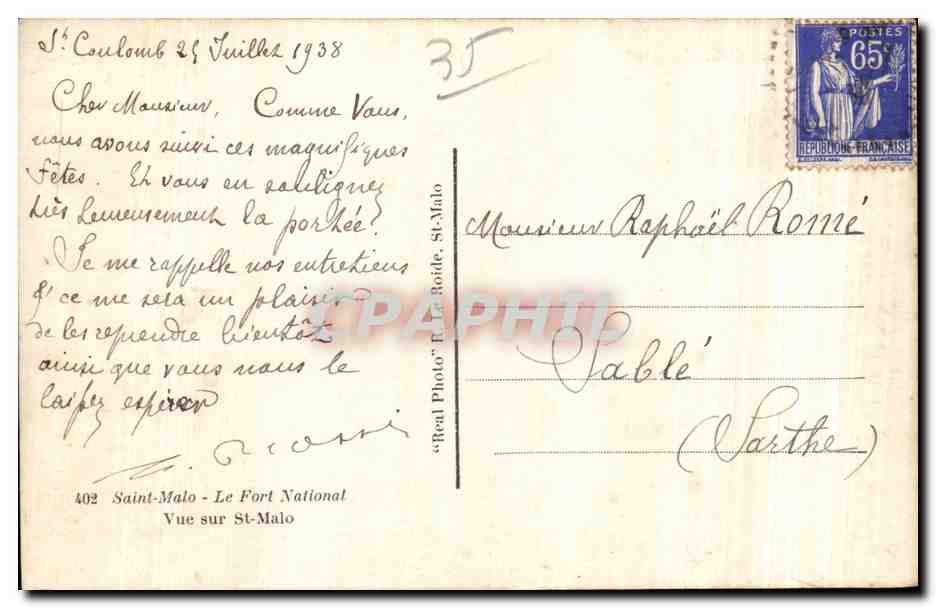 St Coulomb 25 Juillet 1938
35
Cher Monsieur, Comme Vous,
nous avons suivi ces magnifiques
Fêtes. Et vous en soulignez
très heureusement la portée!
Je me rappelle nos entretiens
& ce me sera un plaisir
de les reprendre bientôt
ainsi que vous nous le
laissez espérer
402 Saint-Malo - Le Fort National
Vue sur St-Malo
"Real Photo" E. Le Roide, St-Malo
POSTES
65c
RÉPUBLIQUE-FRANÇAISE
Monsieur Raphaël Romé
Sablé
(Sarthe)
CPAPHIL